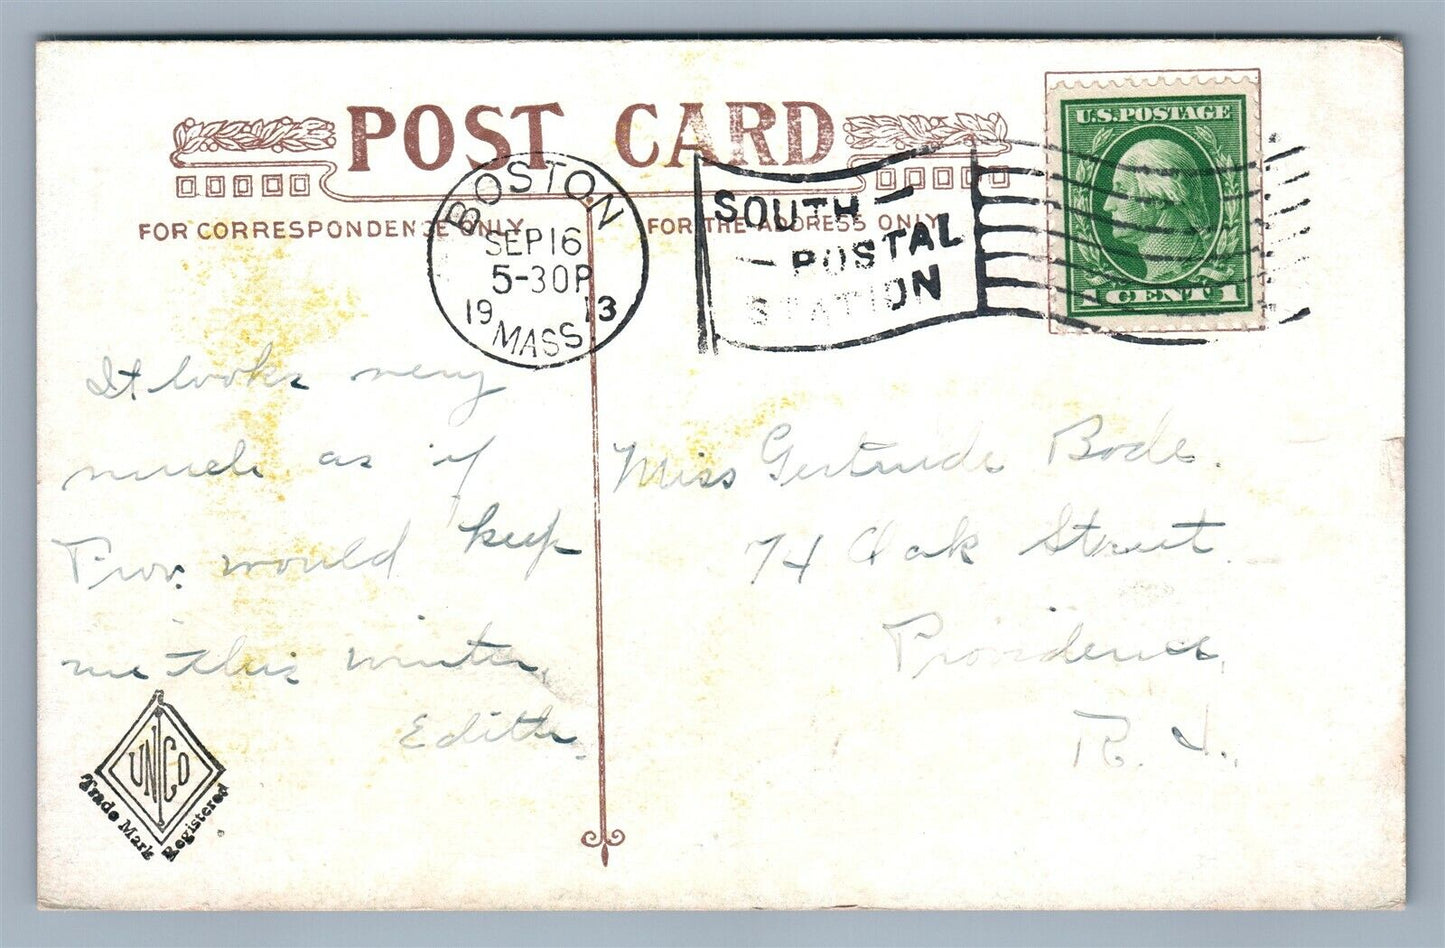 POST CARD
FOR CORRESPONDENCE ONLY
FOR THE ADDRESS ONLY
BOSTON
SEP 16
5-30P
19 13
MASS
SOUTH
POSTAL
STATION
U.S. POSTAGE
1 CENT 1
It looks very
much as if
Prov. would keep
me this winter.
Edith.
Miss Gertrude Bode.
74 Oak Street.
Providence,
R. I.
UNCO
Trade Mark Registered